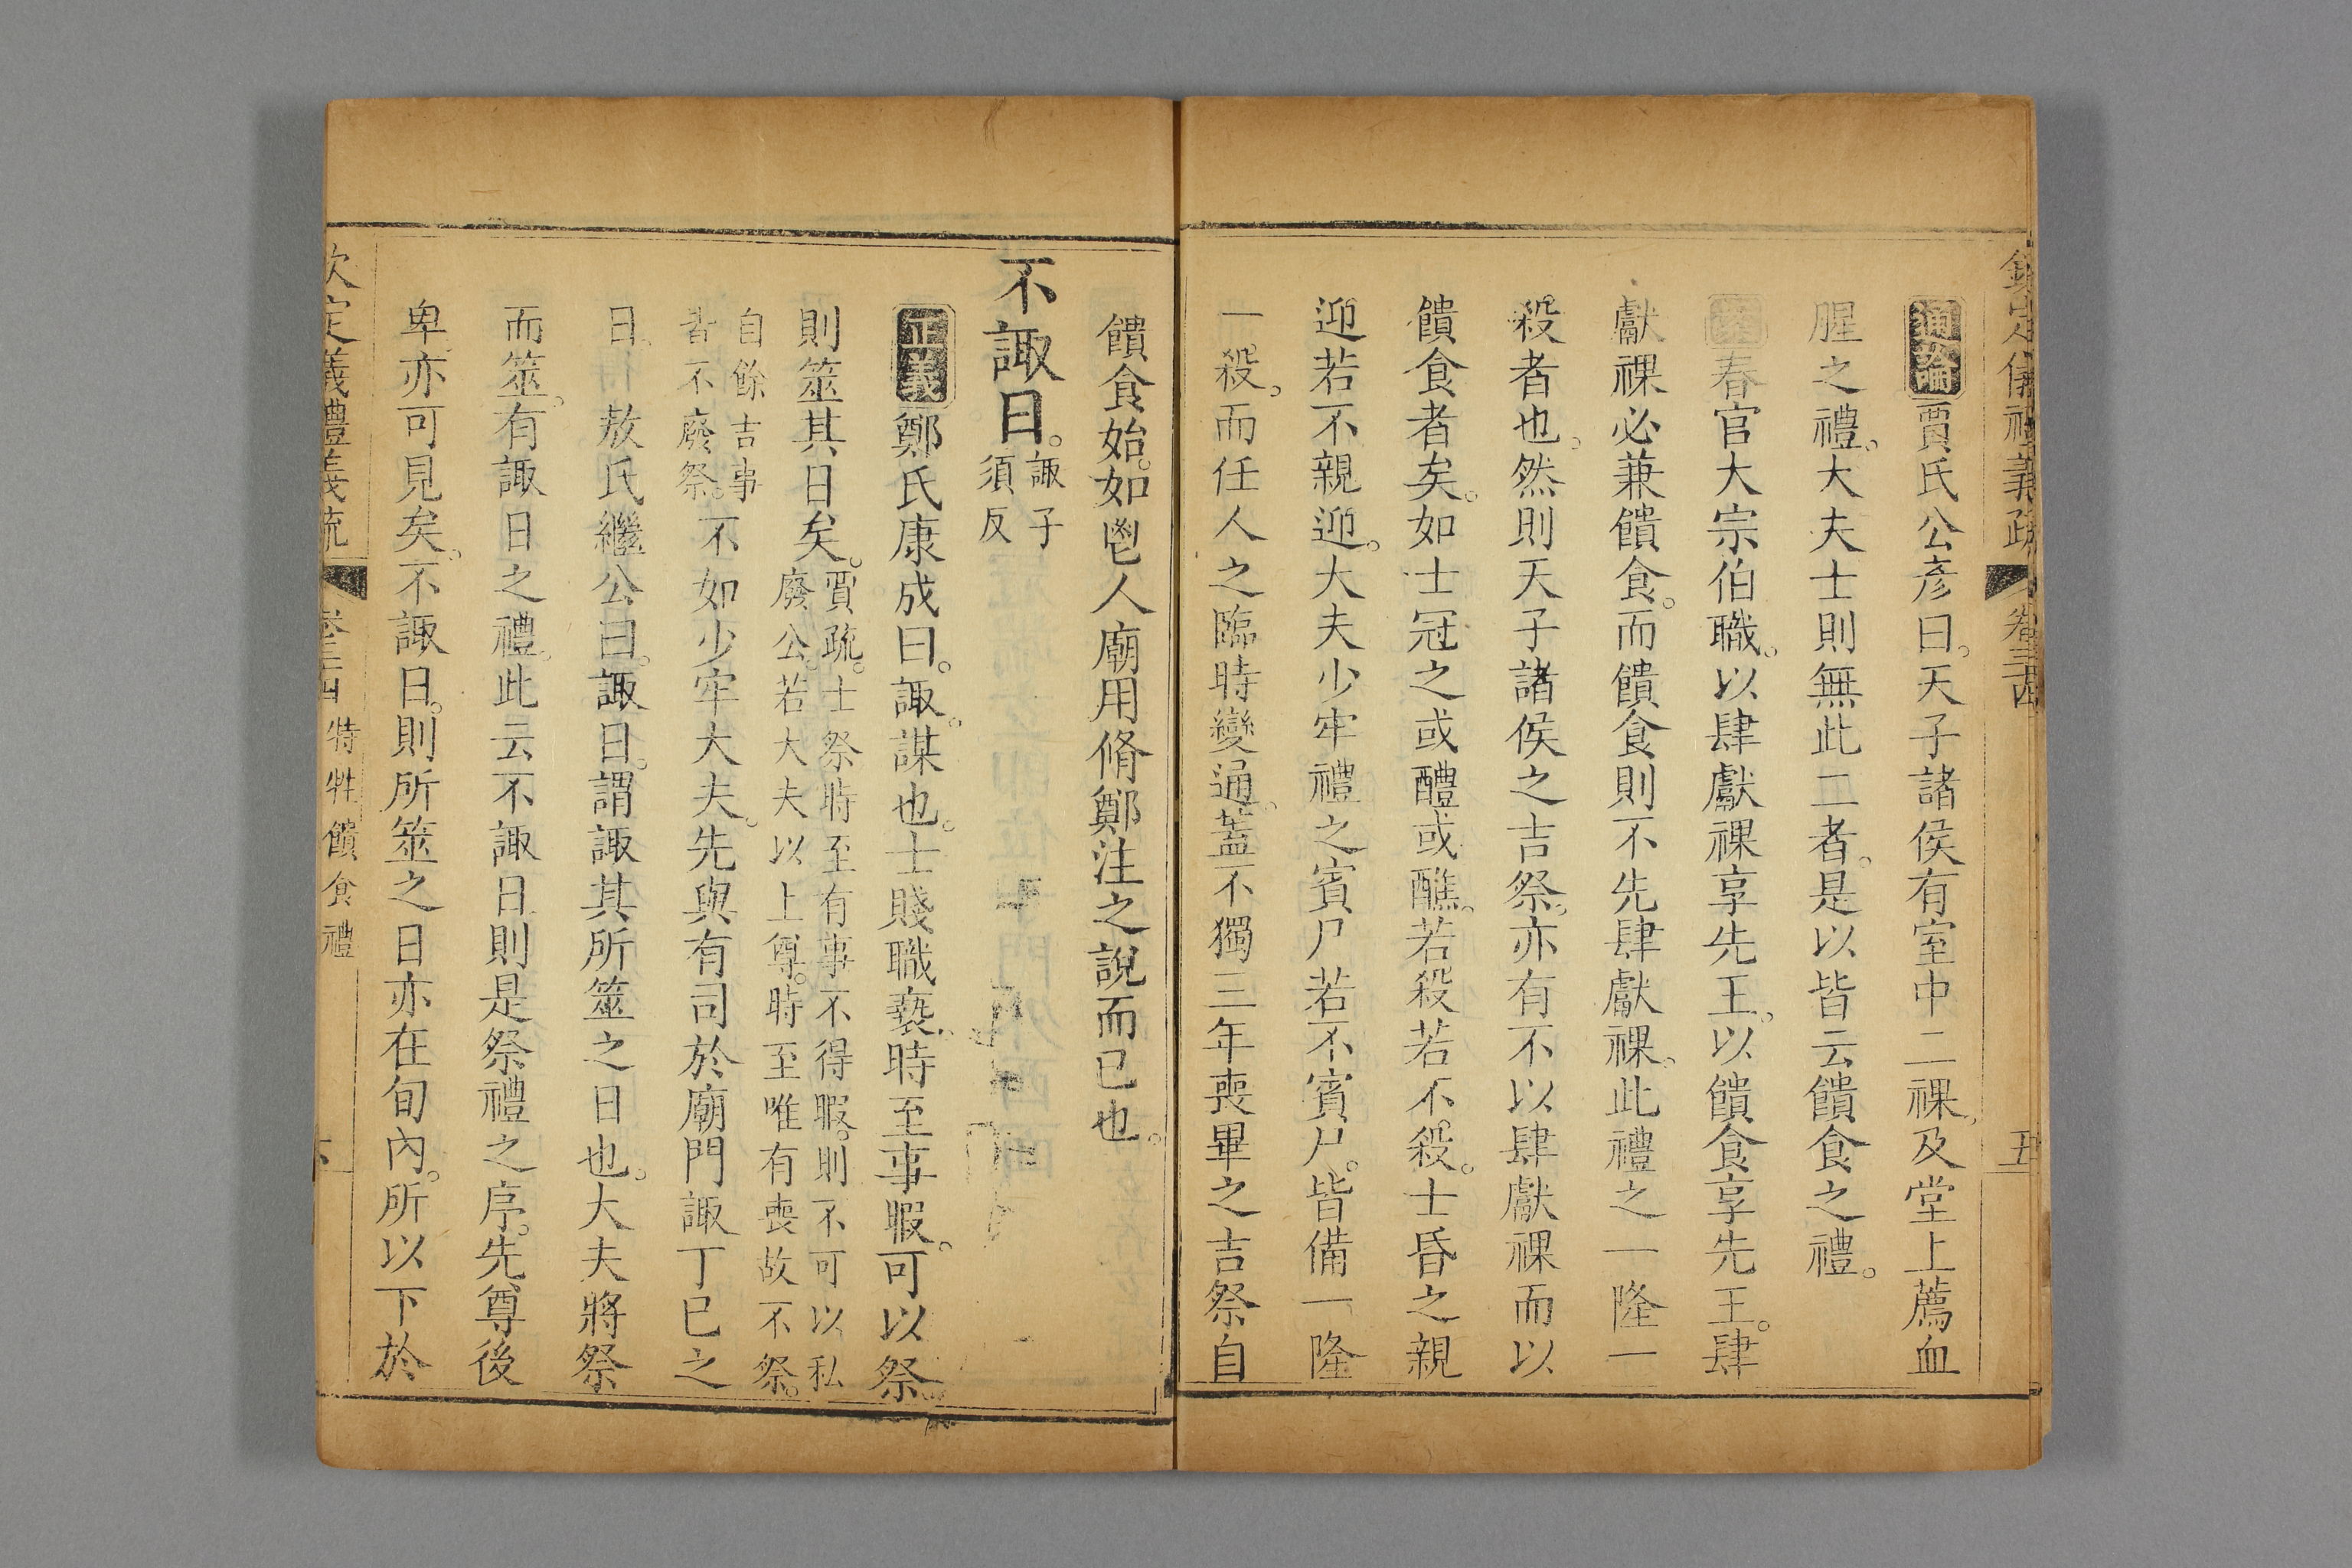 欽定儀禮義疏 卷三十四 五
通論賈氏公彥曰。天子諸侯有室中二祼。及堂上薦血
腥之禮。大夫士則無此二者。是以皆云饋食之禮。
春官大宗伯職。以肆獻祼享先王。以饋食享先王。肆
獻祼必兼饋食。而饋食則不先肆獻祼。此禮之一隆一
殺者也。然則天子諸侯之吉祭。亦有不以肆獻祼而以
饋食者矣。如士冠之或醴或醮。若殺若不殺。士昏之親
迎若不親迎。大夫少牢禮之賓尸若不賓尸。皆備一隆
一殺。而任人之臨時變通。蓋不獨三年喪畢之吉祭自
饋食始。如鬯人廟用脩鄭注之說而已也。
不諏日。諏子須反
正義鄭氏康成曰。諏。謀也。士賤職褻。時至事暇。可以祭
則筮其日矣。賈疏。士祭時至有事不得暇。則不可以私廢公。若大夫以上尊。時至唯有喪故不祭。
自餘吉事皆不廢祭。不如少牢大夫。先與有司於廟門諏丁巳之
日。敖氏繼公曰。諏日。謂諏其所筮之日也。大夫將祭
而筮。有諏日之禮。此云不諏日。則是祭禮之序。先尊後
卑亦可見矣。不諏日。則所筮之日亦在旬內。所以下於
欽定義禮義疏 卷三十四 特牲饋食禮